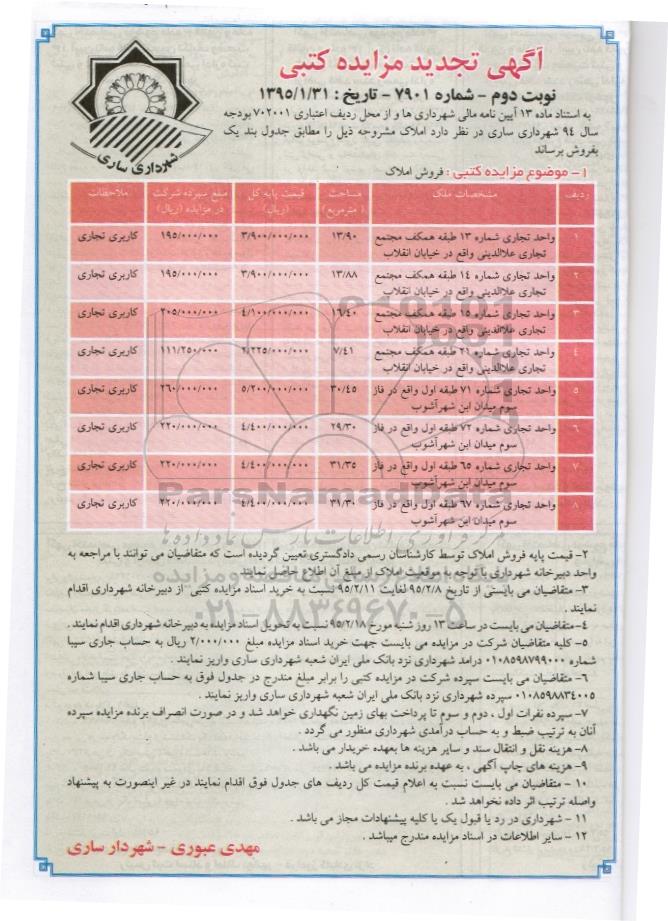 آگهی تجدید مزایده کتبی
نوبت دوم - شماره ۷۹۰۱ - تاریخ : ۱۳۹۵/۱/۳۱
شهرداری ساری
به استناد ماده ۱۳ آیین نامه مالی شهرداری ها و از محل ردیف اعتباری ۷۰۲۰۰۱ بودجه
سال ۹۴ شهرداری ساری در نظر دارد املاک مشروحه ذیل را مطابق جدول بند یک
بفروش برساند
۱- موضوع مزایده کتبی : فروش املاک
ردیف مشخصات ملک مساحت (مترمربع) قیمت پایه کل (ریال) مبلغ سپرده شرکت در مزایده (ریال) ملاحظات
۱ واحد تجاری شماره ۱۳ طبقه همکف مجتمع تجاری علاالدینی واقع در خیابان انقلاب ۱۳/۹۰ ۳/۹۰۰/۰۰۰/۰۰۰ ۱۹۵/۰۰۰/۰۰۰ کاربری تجاری
۲ واحد تجاری شماره ۱۴ طبقه همکف مجتمع تجاری علاالدینی واقع در خیابان انقلاب ۱۳/۸۸ ۳/۹۰۰/۰۰۰/۰۰۰ ۱۹۵/۰۰۰/۰۰۰ کاربری تجاری
۳ واحد تجاری شماره ۱۵ طبقه همکف مجتمع تجاری علاالدینی واقع در خیابان انقلاب ۱۶/۴۰ ۴/۱۰۰/۰۰۰/۰۰۰ ۲۰۵/۰۰۰/۰۰۰ کاربری تجاری
۴ واحد تجاری شماره ۲۱ طبقه همکف مجتمع تجاری علاالدینی واقع در خیابان انقلاب ۷/۴۱ ۲/۲۲۵/۰۰۰/۰۰۰ ۱۱۱/۲۵۰/۰۰۰ کاربری تجاری
۵ واحد تجاری شماره ۷۱ طبقه اول واقع در فاز سوم میدان ابن شهرآشوب ۳۰/۴۵ ۵/۲۰۰/۰۰۰/۰۰۰ ۲۶۰/۰۰۰/۰۰۰ کاربری تجاری
۶ واحد تجاری شماره ۷۲ طبقه اول واقع در فاز سوم میدان ابن شهرآشوب ۲۹/۳۰ ۴/۴۰۰/۰۰۰/۰۰۰ ۲۲۰/۰۰۰/۰۰۰ کاربری تجاری
۷ واحد تجاری شماره ۶۵ طبقه اول واقع در فاز سوم میدان ابن شهرآشوب ۳۱/۳۵ ۴/۴۰۰/۰۰۰/۰۰۰ ۲۲۰/۰۰۰/۰۰۰ کاربری تجاری
۸ واحد تجاری شماره ۶۷ طبقه اول واقع در فاز سوم میدان ابن شهرآشوب ۳۱/۳۰ ۴/۴۰۰/۰۰۰/۰۰۰ ۲۲۰/۰۰۰/۰۰۰ کاربری تجاری
ParsNamadData
مرکز فرآوری اطلاعات پارس نماد داده ها
۰۲۱-۸۸۳۴۹۶۷۰-۵
۲- قیمت پایه فروش املاک توسط کارشناسان رسمی دادگستری تعیین گردیده است که متقاضیان می توانند با مراجعه به
واحد دبیرخانه شهرداری با توجه به موقعیت املاک از مبلغ آن اطلاع حاصل نمایند
۳- متقاضیان می بایستی از تاریخ ۹۵/۲/۸ لغایت ۹۵/۲/۱۱ نسبت به خرید اسناد مزایده کتبی از دبیرخانه شهرداری اقدام
نمایند .
۴- متقاضیان می بایست در ساعت ۱۳ روز شنبه مورخ ۹۵/۲/۱۸ نسبت به تحویل اسناد مزایده به دبیرخانه شهرداری اقدام نمایند .
۵- کلیه متقاضیان شرکت در مزایده می بایست جهت خرید اسناد مزایده مبلغ ۲/۰۰۰/۰۰۰ ریال به حساب جاری سیبا
شماره ۰۱۰۸۵۹۸۷۹۹۰۰۰ درامد شهرداری نزد بانک ملی ایران شعبه شهرداری ساری واریز نمایند .
۶- متقاضیان می بایست سپرده شرکت در مزایده کتبی را برابر مبلغ مندرج در جدول فوق به حساب جاری سیبا شماره
۰۱۰۸۵۹۸۸۳۴۰۰۵ سپرده شهرداری نزد بانک ملی ایران شعبه شهرداری ساری واریز نمایند .
۷- سپرده نفرات اول ، دوم و سوم تا پرداخت بهای زمین نگهداری خواهد شد و در صورت انصراف برنده مزایده سپرده
آنان به ترتیب ضبط و به حساب درآمدی شهرداری منظور می گردد .
۸- هزینه نقل و انتقال سند و سایر هزینه ها بعهده خریدار می باشد .
۹- هزینه های چاپ آگهی ، به عهده برنده مزایده می باشد .
۱۰- متقاضیان می بایست نسبت به اعلام قیمت کل ردیف های جدول فوق اقدام نمایند در غیر اینصورت به پیشنهاد
واصله ترتیب اثر داده نخواهد شد .
۱۱- شهرداری در رد یا قبول یک یا کلیه پیشنهادات مجاز می باشد .
۱۲- سایر اطلاعات در اسناد مزایده مندرج میباشد .
مهدی عبوری - شهردار ساری